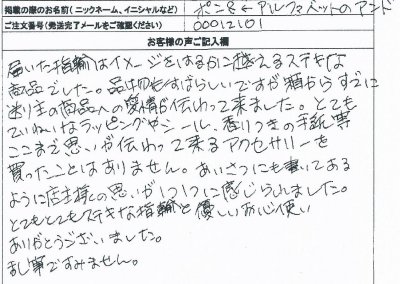 掲載の際のお名前(ニックネーム、イニシャルなど) ポン&←アルファベットのアンド
ご注文番号(発送完了メールをご確認ください) 00012101
お客様の声ご記入欄
届いた指輪はイメージをはるかに越えるステキな
商品でした。品物もすばらしいですが箱からすでに
送り主の商品への愛情が伝わって来ました。とても
ていねいなラッピングやシール、香りつきの手紙等
ここまで思いが伝わって来るアクセサリーを
買ったことはありません。あいさつにも書いてある
ように店主様の思いが1つ1つに感じられました。
とてもとてもステキな指輪と優しいお心使い
ありがとうございました。
乱筆ですみません。